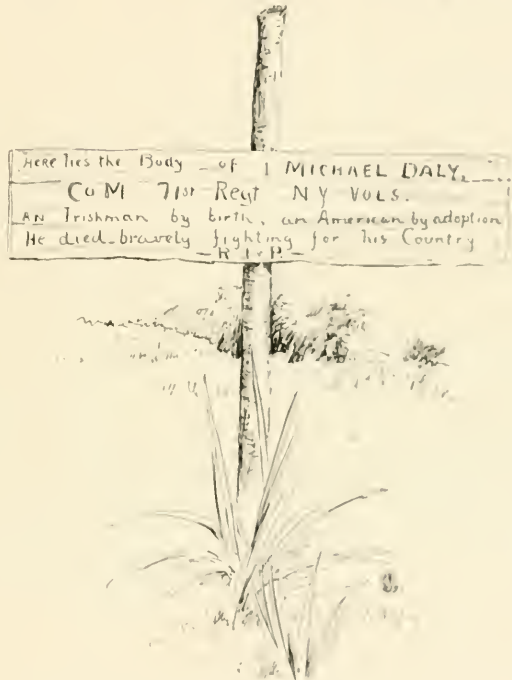 HERE lies the Body of MICHAEL DALY.
Co M 71st Regt NY VOLS.
AN Irishman by birth, an American by adoption
He died bravely fighting for his Country
R.I.P.